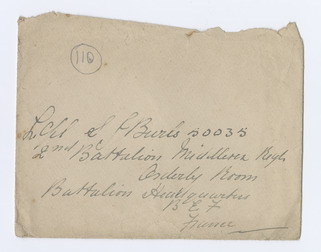 110
L/Cpl S J Burls 50035
2nd Battalion Middlesex Regt
Orderly Room
Battalion Headquarters
B E F
France